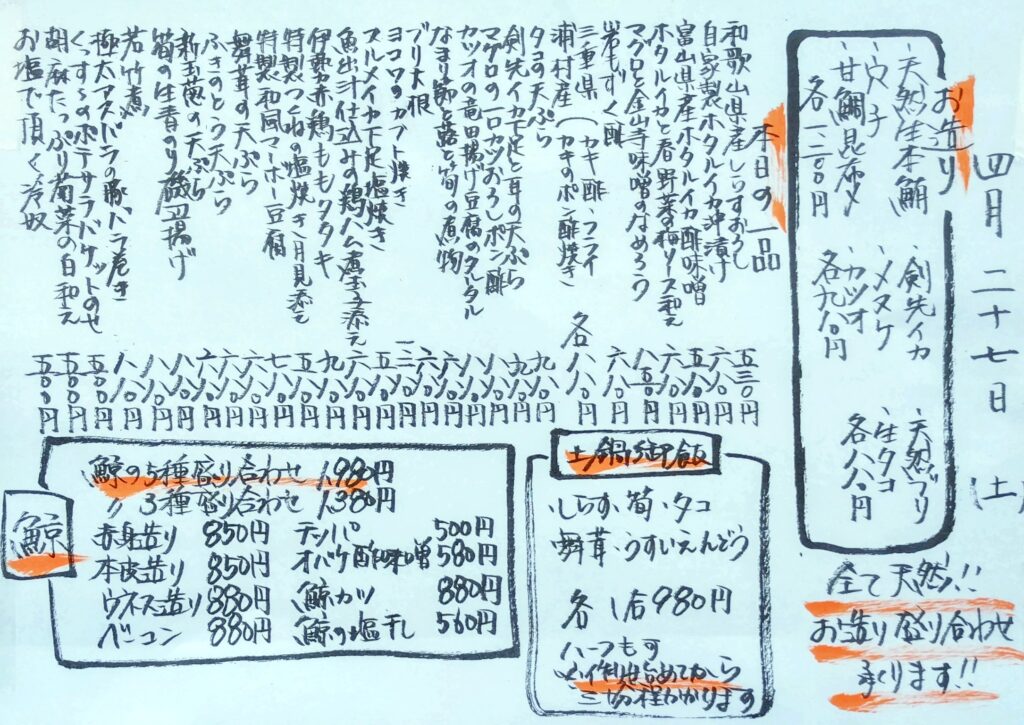 四月二十七日(土)
お造り
・天然生本鮪
・穴子
・甘鯛昆布〆
各一二〇〇円
・剣先イカ
・メヌケ
・カツオ
各九八〇円
・天然ブリ
・生タコ
各八八〇円
全て天然!!
お造り盛り合わせ
承ります!!
本日の一品
和歌山県産しらすおろし 五三〇円
自家製ホタルイカ沖漬け 六八〇円
富山県産ホタルイカ酢味噌
ホタルイカと春野菜の梅ソース和え
マグロと金山寺味噌のなめろう
岩もずく酢
三重県
浦村産
(カキ酢・フライ
(カキのポン酢焼き
各八八〇円
タコの天ぷら
剣先イカ下足と耳の天ぷら
マグロの一口カツおろしポン酢
カツオの竜田揚げ豆腐のタルタル
なまり節と蕗と筍の煮物
ブリ大根
ヨコワのカブト焼き
スルメイカ下足塩焼き
魚出汁仕込みの鶏ハム煮玉子添え
伊勢赤鶏ももタタキ
特製つくねの塩焼き月見添え
特製和風マーボー豆腐
舞茸の天ぷら
ふきのとう天ぷら
新玉葱の天ぷら
筍の生青のり磯辺揚げ
若竹煮
極太アスパラの豚バラ巻き
くすもののポテサラバケットのせ
胡麻たっぷり菊菜の白和え 五〇〇円
お塩で頂く冷奴 五〇〇円
土鍋御飯
・しらす・筍・タコ
舞茸・うすいえんどう
各1合980円
ハーフも可
三〇分程かかります
鯨
鯨の5種盛り合わせ 1,980円
〃3種盛り合わせ 1,380円
赤身造り 850円
本皮造り 850円
ウネス造り 880円
ベーコン 880円
テッパ 500円
オバケ酢味噌 580円
鯨カツ 880円
鯨の塩干し 560円